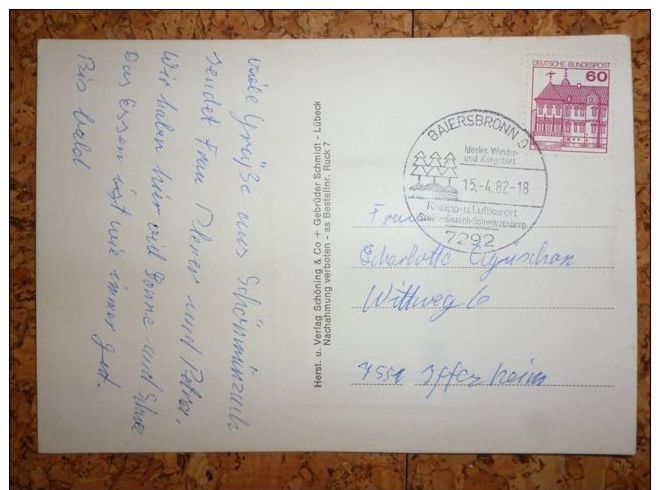 Viele Grüße aus Schönmünzach
sendet Frau Palmer und Petra.
Wir haben hier viel Sonne und Schnee
Das Essen ist wie immer gut.
Bis bald
Herst. u. Verlag Schöning & Co + Gebrüder Schmidt - Lübeck
Nachahmung verboten - as Bestellnr. Ruck 7
DEUTSCHE BUNDESPOST
60
BAIERSBRONN 9
Ideales Wander-
und Kurgebiet
15.-4.82-18
Kneipp-u.Luftkurort
Schönmünzach-Schwarzenberg
7292
Frau
Echarlotte
Wittweg 6
7551 Iffezheim